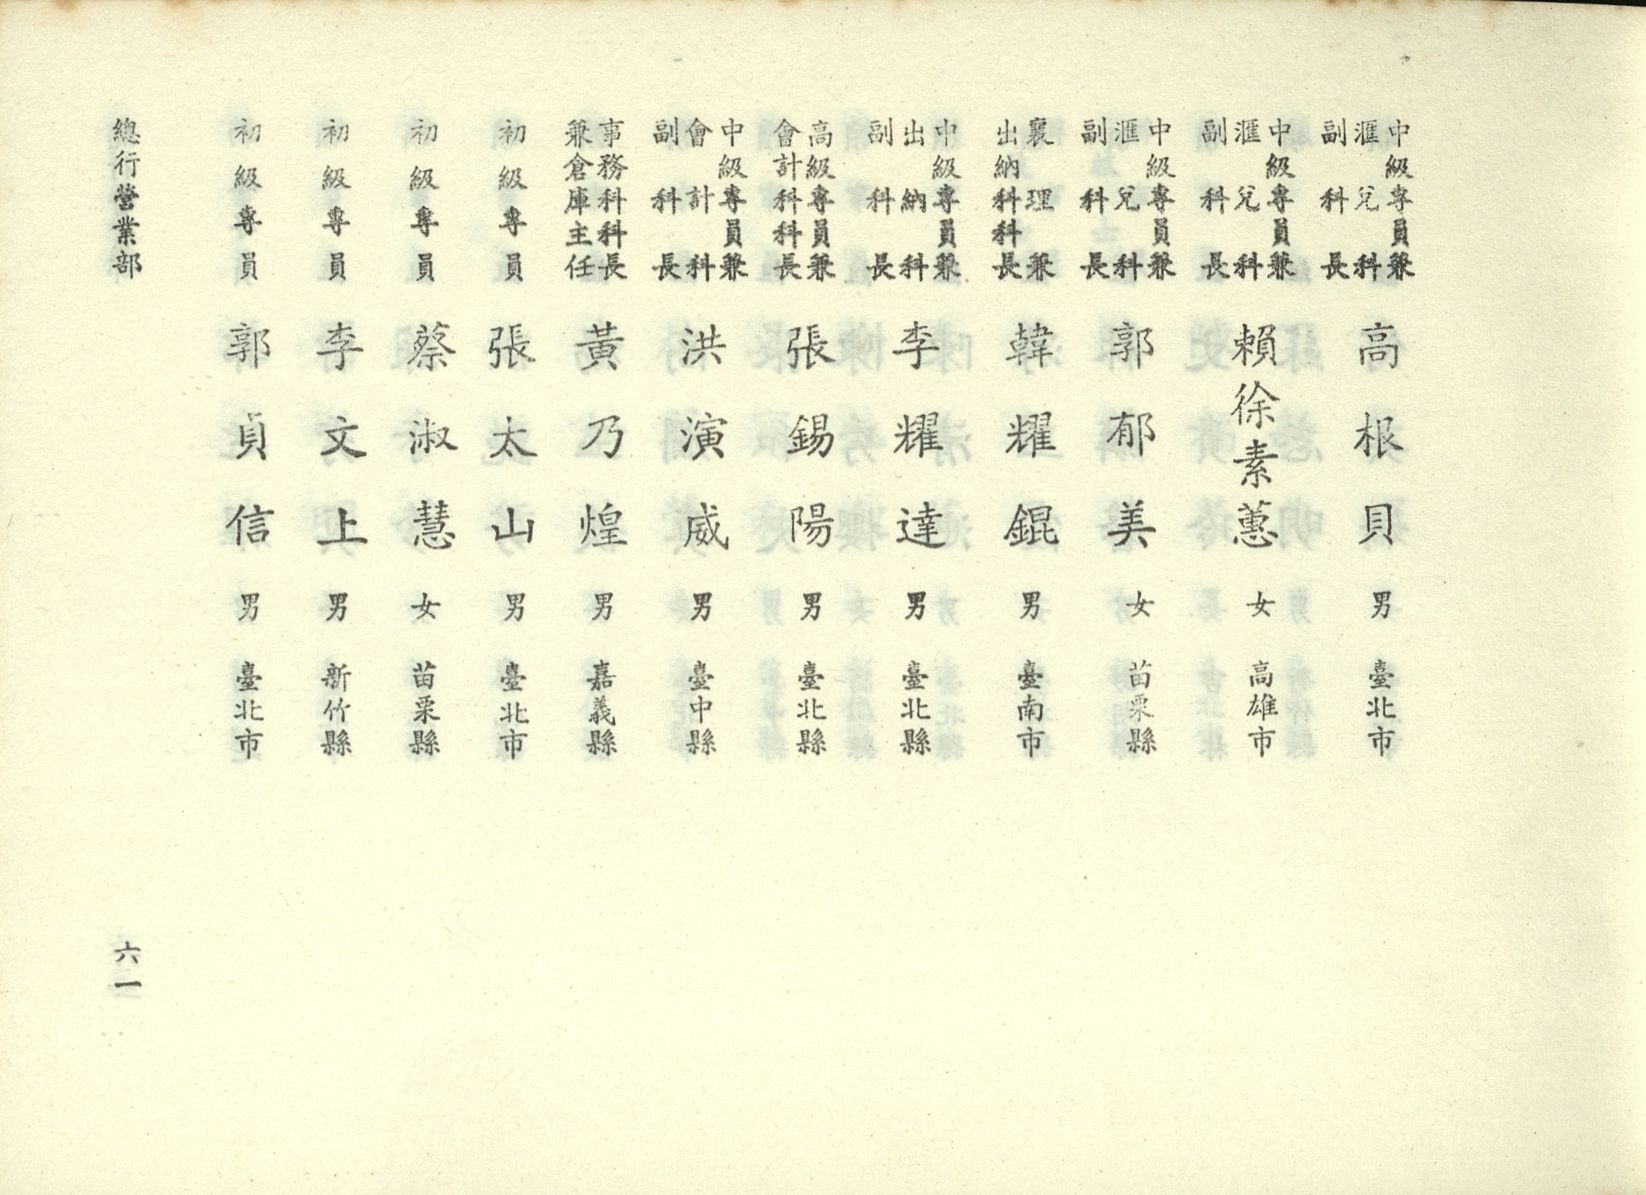 中級專員兼
滙兌科
副科長
高根貝
男
臺北市
中級專員兼
滙兌科
副科長
賴徐素蕙
女
高雄市
中級專員兼
滙兌科
副科長
郭郁美
女
苗栗縣
襄理兼
出納科科長
韓耀錕
男
臺南市
中級專員兼
出納科
副科長
李耀達
男
臺北縣
高級專員兼
會計科科長
張錫陽
男
臺北縣
中級專員兼
會計科
副科長
洪演威
男
臺中縣
事務科科長
兼倉庫主任
黃乃煌
男
嘉義縣
初級專員
張太山
男
臺北市
初級專員
蔡淑慧
女
苗栗縣
初級專員
李文上
男
新竹縣
初級專員
郭貞信
男
臺北市
總行營業部
六一